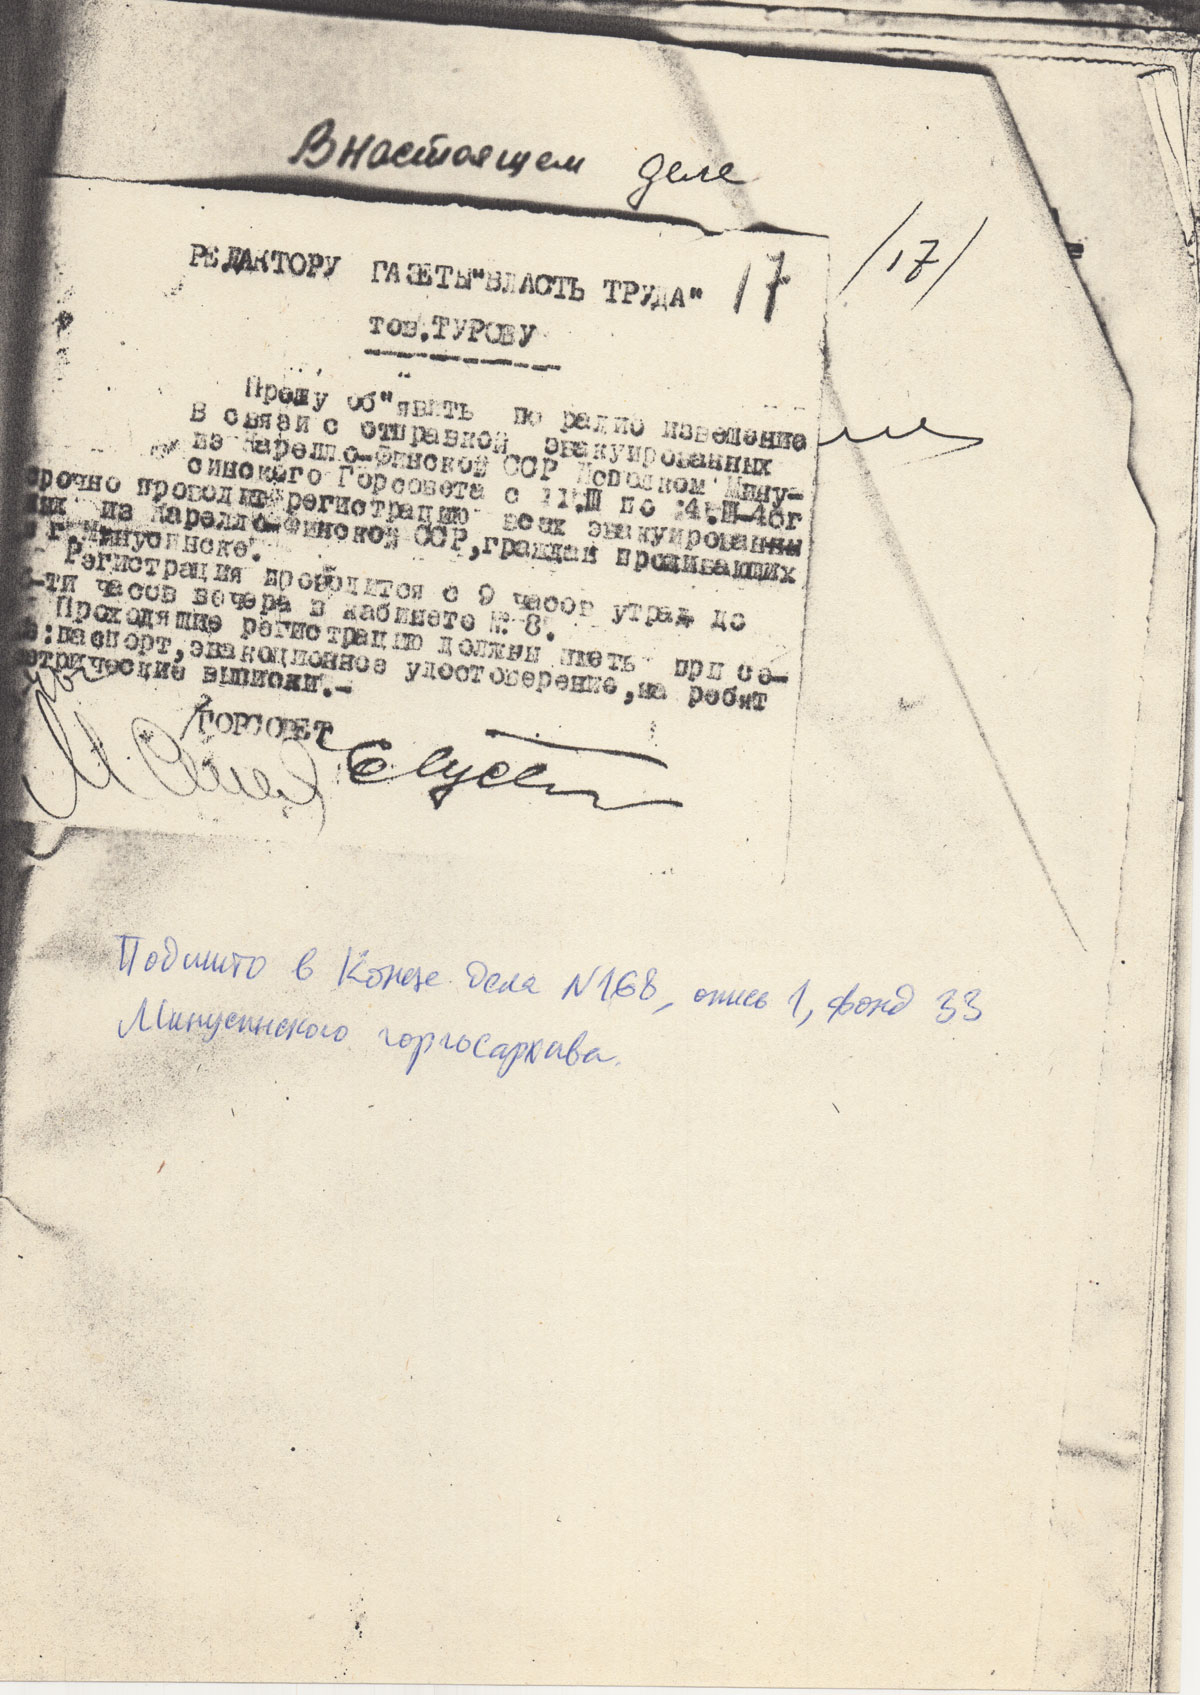 В настоящем деле
/17/
17
РЕДАКТОРУ ГАЗЕТЫ "ВЛАСТЬ ТРУДА"
тов.ТУРОВУ
Прошу об"явить по радио извещение
В связи с отправкой эвакуированных
из Карелло-Финской ССР Исполком Мину-
синского Горсовета с 11.III по 14.III-46г
срочно проводит регистрацию всех эвакуирован
ных из Карелло-Финской ССР, граждан проживающих
в г.Минусинске.
Регистрация проводится с 9 часов утра до
-ти часов вечера в кабинете № 8.
Проходящие регистрацию должны иметь при се-
бе:паспорт,эвакоционное удостоверение,на ребят
етрические выписки.-
ГОРСОВЕТ
Подшито в Конце дела N168, опись 1, фонд 33
Минусинского горгосархива.